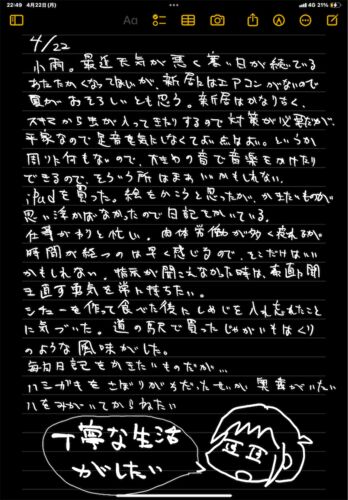 22:49 4月22日(月)
4G 21%
Aa
4/22
小雨。最近天気が悪く寒い日が続いている
あたたかくなってほしいが、新居にはエアコンがないので
夏がおそろしいとも思う。新居はかなり古く、
スキマから虫が入ってきたりするので対策が必要だが、
平家なので足音を気にしなくてよいのはよい。というか
周りに何もないので、大きめの音で音楽をかけたり
できるので、そういう所はまあいいかもしれない。
iPadを買った。絵をかこうと思ったが、かきたいものが
思い浮かばなかったので日記をかいている。
仕事がわりと忙しい。肉体労働が多く疲れるが、
時間が経つのは早く感じるので、そこだけはいい
かもしれない。指示が聞こえなかった時は、素直に聞
き直す勇気を常に持ちたい。
シチューを作って食べた後にしめじを入れ忘れたこと
に気づいた。道の駅で買ったじゃがいもはくり
のような風味がした。
毎日日記をかきたいものだが…
ハミガキをさぼりがちだったせいか、奥歯がいたい
ハをみがいてからねたい
丁寧な生活
がしたい